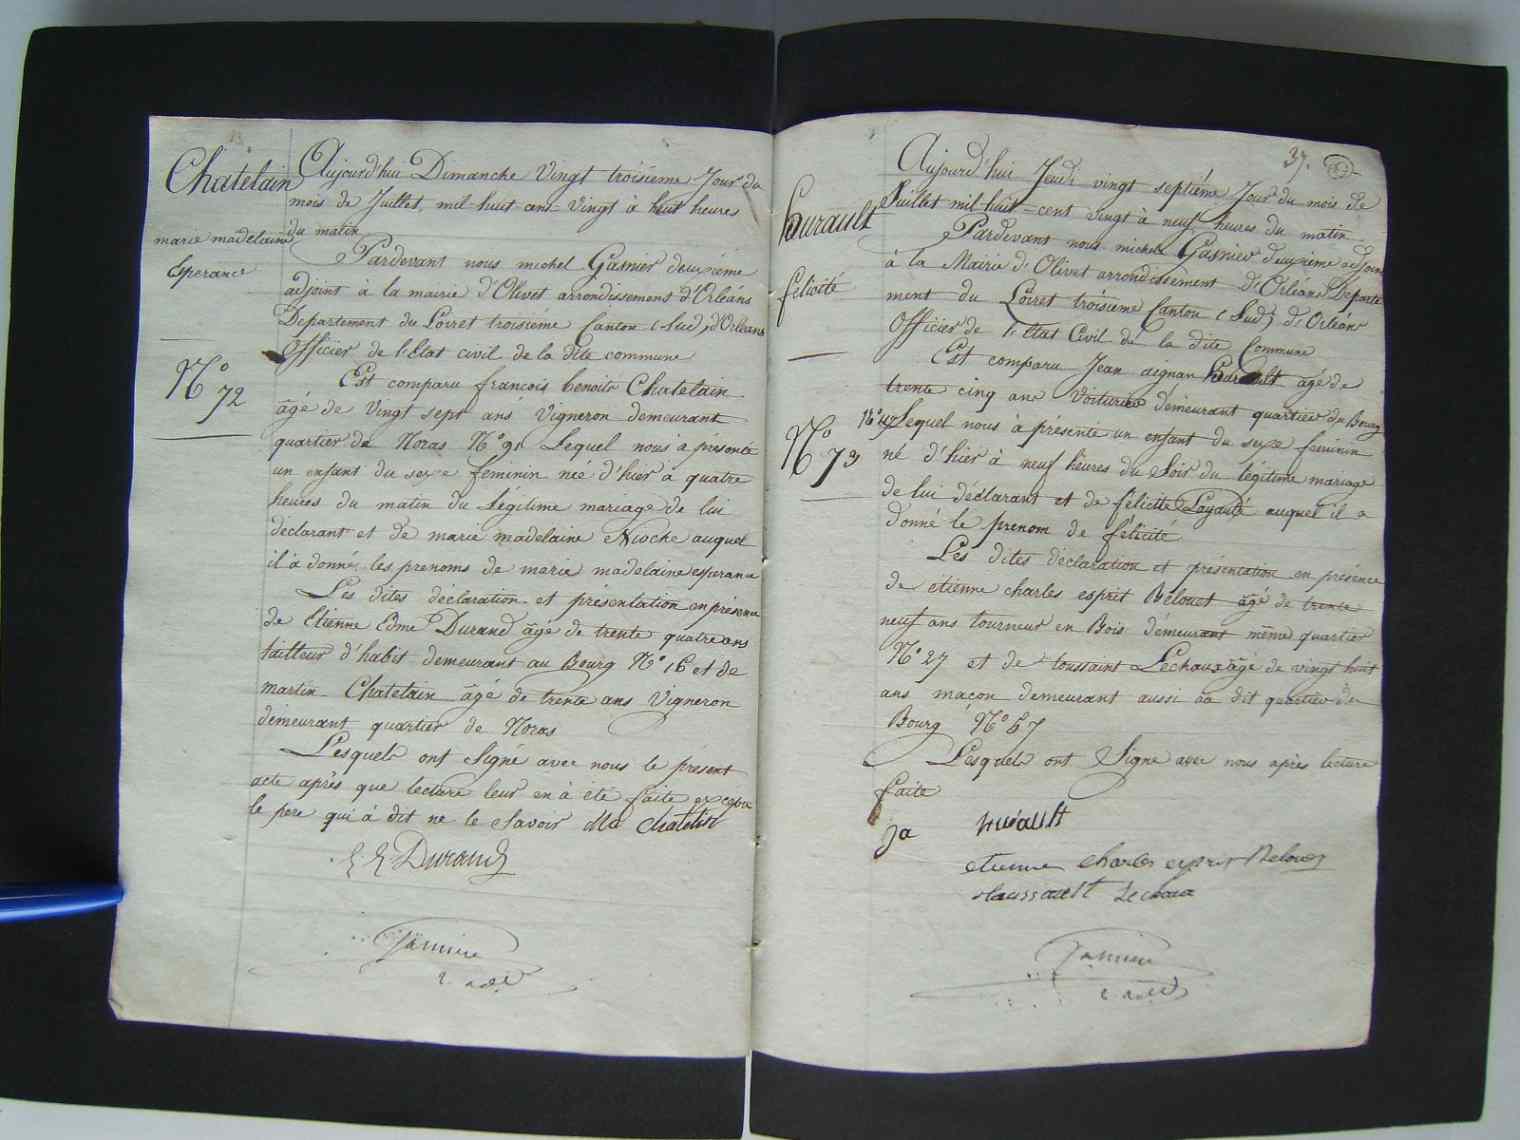 Chatelain
marie madelaine
Esperance
N° 72
Aujourd'hui Dimanche Vingt troisieme Jour du
mois de Juillet, mil-huit cent Vingt à huit heures
du matin
Pardevant nous michel Gasnier deuxieme
adjoint à la mairie d'Olivet arrondissement d'Orléans
Departement du Loiret troisieme Canton (Sud) d'Orléans
Officier de l'Etat civil de la dite commune
Est comparu francois benoite Chatelain
âgé de Vingt sept ans Vigneron demeurant
quartier de Noras N° 91 Lequel nous à présenté
un enfant du sexe feminin née d'hier à quatre
heures du matin du Légitime mariage de lui
declarant et de marie madelaine Nioche auquel
il à donné les prenoms de marie madelaine esperance
Les dites déclaration et présentation en présence
de Etienne Edme Durand âgé de trente quatre ans
tailleur d'habit demeurant au Bourg N° 16 et de
martin Chatelain âgé de trente ans Vigneron
demeurant quartier de Noras
Lesquels ont Signé avec nous le présent
acte après que lecture leur en à été faite excepté
le pere qui à dit ne le Savoir Ma Chatelin
E. E. Durand
2. adjt
37.
hurault
felicité
N° 73
Aujourd'hui Jeudi vingt septième Jour du mois de
Juillet mil huit-cent vingt à neuf heures du matin
Pardevant nous michel Gasnier deuxieme adjoint
à la Mairie d'Olivet arrondissement d'Orléans Departe
ment du Loiret troisieme Canton (Sud) d'Orléans
Officier de l'Etat Civil de la dite Commune
Est comparu Jean aignan hurault âgé de
trente cinq ans Voiturier demeurant quartier du Bourg
Lequel nous à présenté un enfant du sexe feminin
né d'hier à neuf heures du Soir du légitime mariage
de lui déclarant et de félicitte Loyauté auquel il a
donné le prenom de félicité
Les dites déclaration et présentation en présence
de étienne charles esprit Belouet âgé de trente
neuf ans tourneur en Bois demeurant même quartier
N° 27 et de toussaint Lechaux âgé de vingt huit
ans maçon demeurant aussi au dit quartier du
Bourg N° 57
Lesquels ont Signé avec nous après lecture
faite
ja hurault
etienne charles esprit Belouet
toussaint Lechaux
2. adjt